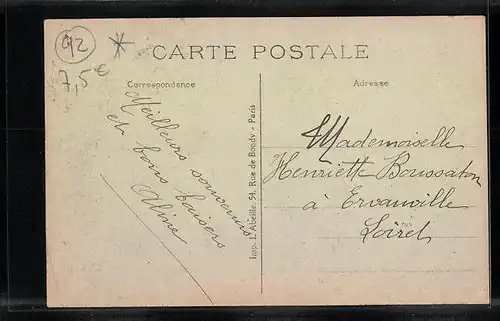 92
*
7,5€
CARTE POSTALE
Correspondance
Adresse
Meilleurs souvenirs
et bons baisers
Aline
Imp. L'Abeille, 54, Rue de Bondy - Paris
Mademoiselle
Henriette Boussaton
à Ervauville
Loiret